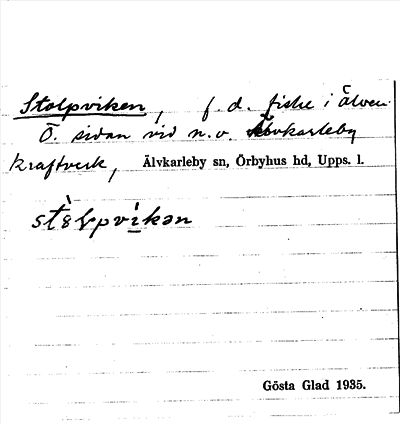 Stolpviken, f. d. fiske i älven.
Ö. sidan vid n.v. Älvkarleby
kraftverk, Älvkarleby sn, Örbyhus hd, Upps. l.
Gösta Glad 1935.